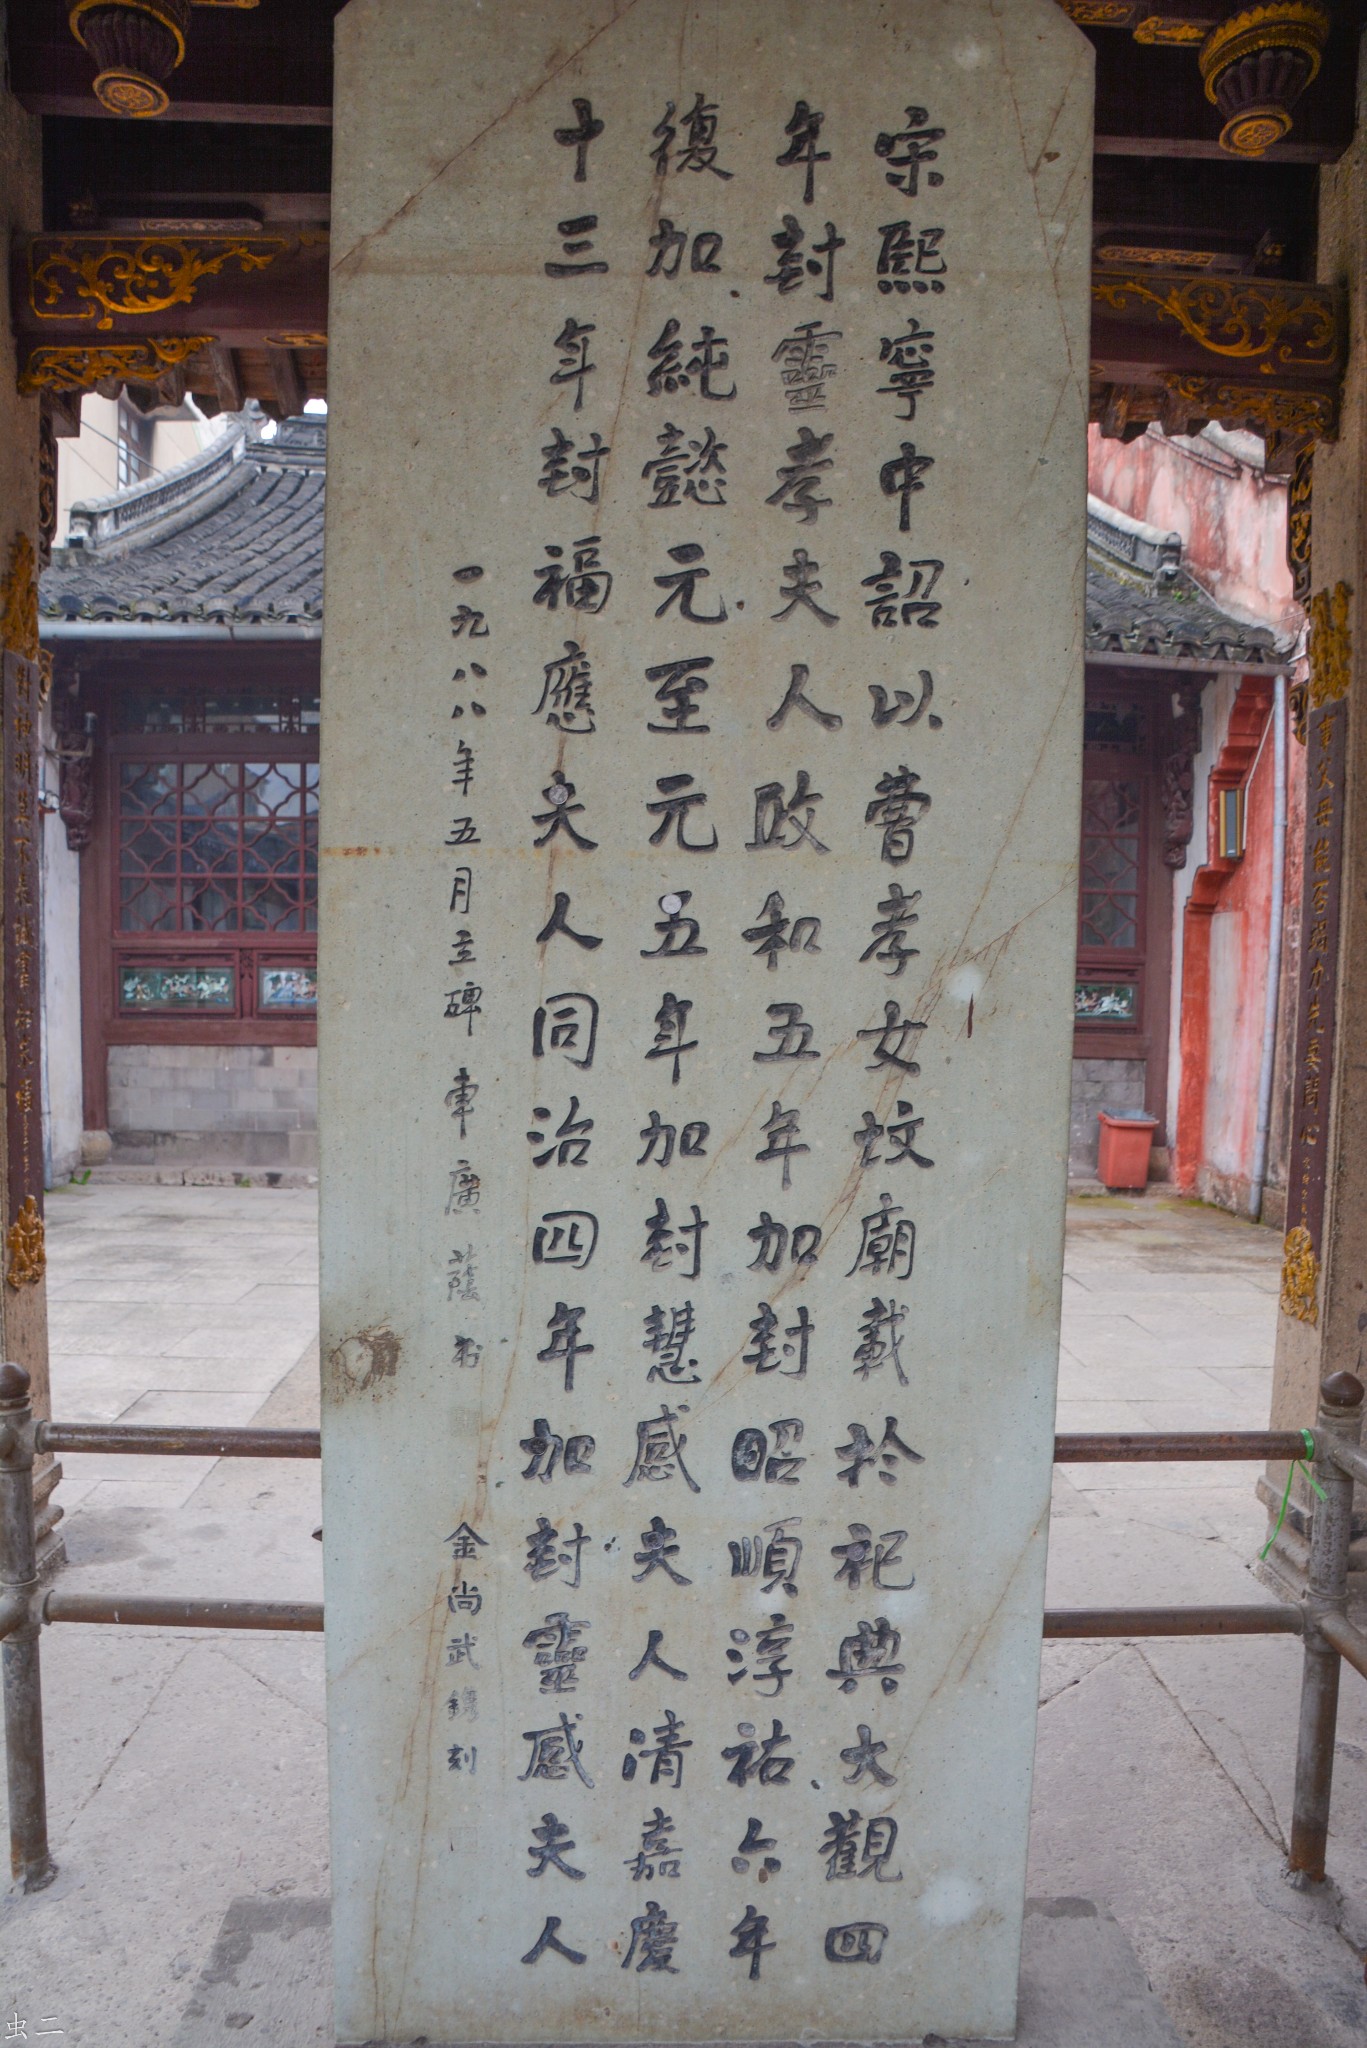 宋熙寧中詔以曹孝女墳廟載於祀典大觀四
年封靈孝夫人政和五年加封昭順淳祐六年
復加純懿元至元五年加封慧感夫人清嘉慶
十三年封福應夫人同治四年加封靈感夫人
一九八八年五月立碑 車廣蔭书 金尚武鐫刻
虫二